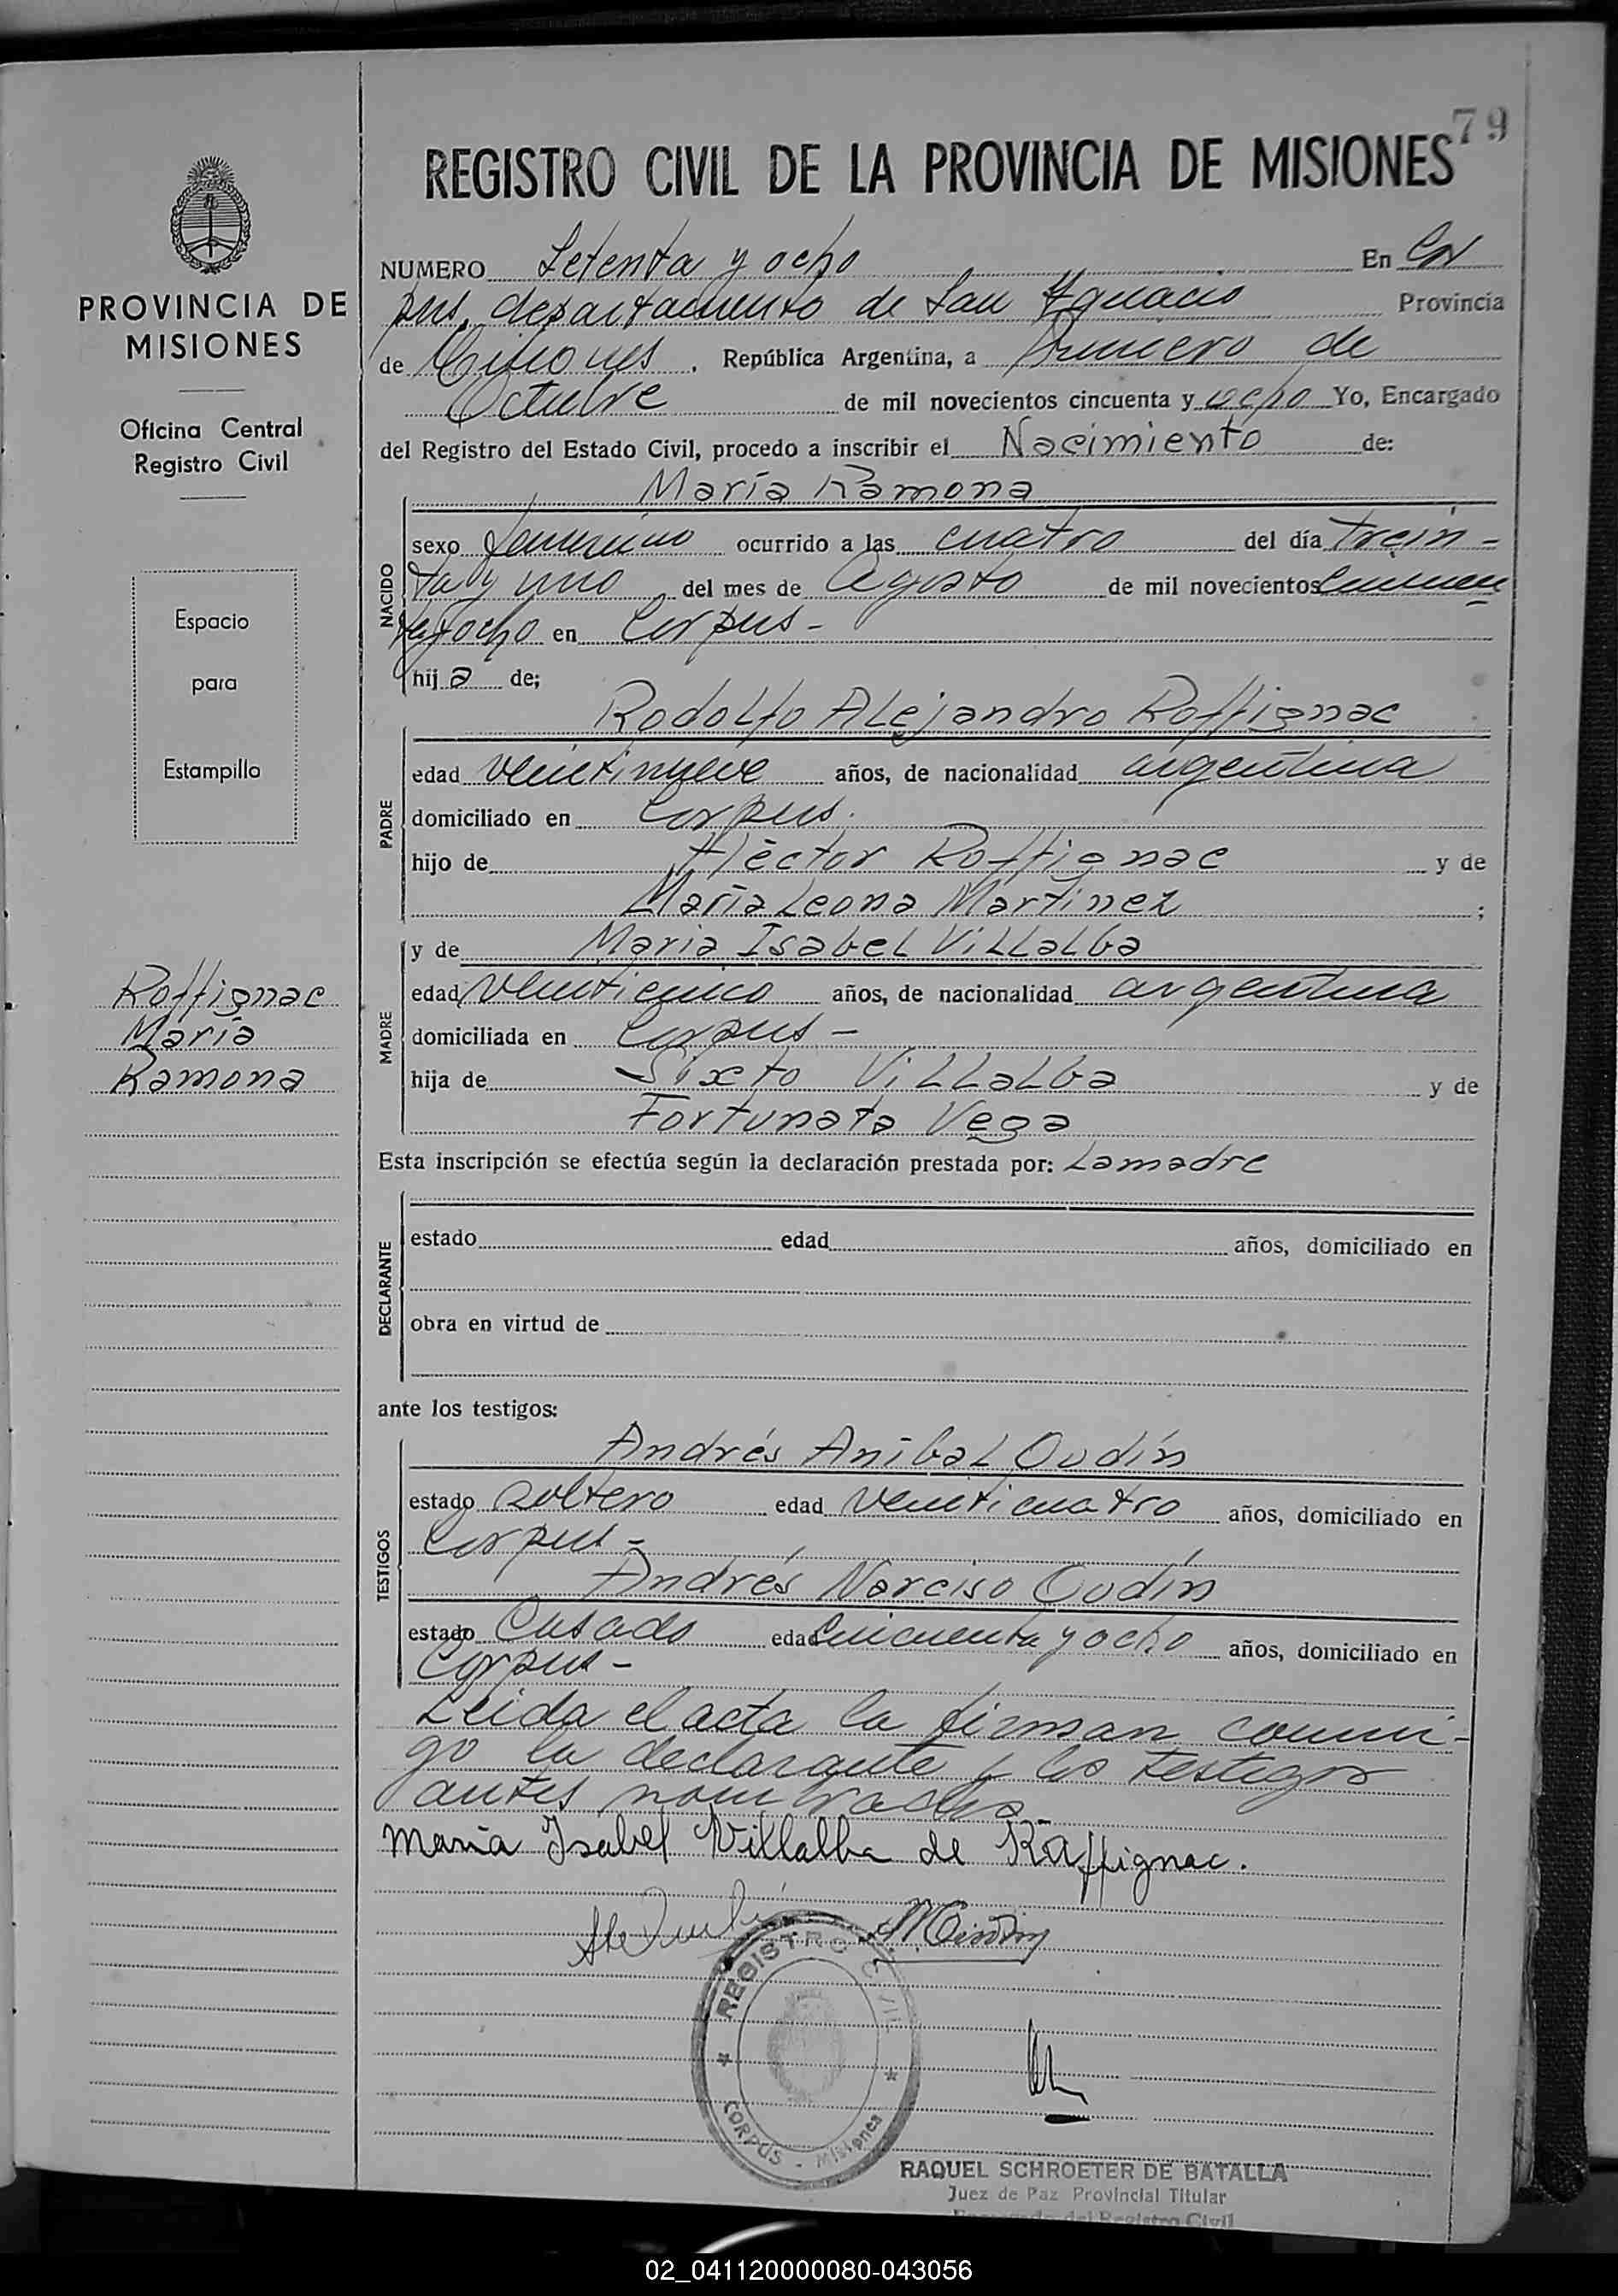 79
REGISTRO CIVIL DE LA PROVINCIA DE MISIONES
PROVINCIA DE
MISIONES
Oficina Central
Registro Civil
Espacio
para
Estampilla
Roffignac
María
Ramona
NUMERO Setenta y ocho En Cor
pus, departamento de San Ygnacio Provincia
de Misiones. República Argentina, a primero de
Octubre de mil novecientos cincuenta y ocho Yo, Encargado
del Registro del Estado Civil, procedo a inscribir el Nacimiento de:
María Ramona
NACIDO
sexo femenino ocurrido a las cuatro del día trein-
ta y uno del mes de Agosto de mil novecientos cincuen
ta y ocho en Corpus-
hija de;
Rodolfo Alejandro Roffignac
PADRE
edad veintinueve años, de nacionalidad argentina
domiciliado en Corpus.
hijo de Héctor Roffignac y de
María Leona Martínez ;
y de María Isabel Villalba
MADRE
edad veinticinco años, de nacionalidad argentina
domiciliada en Corpus-
hija de Sixto Villalba y de
Fortunata Vega
Esta inscripción se efectúa según la declaración prestada por: La madre
DECLARANTE
estado edad años, domiciliado en
obra en virtud de
ante los testigos:
Andrés Aníbal Oudín
TESTIGOS
estado soltero edad veinticuatro años, domiciliado en
Corpus-
Andrés Narciso Oudín
estado Casado edad cincuenta y ocho años, domiciliado en
Corpus-
Leida el acta la firman conmi-
go la declarante y los testigos
antes nombrados
María Isabel Villalba de Raffignac.
REGISTRO CIVIL
CORPUS - Misiones
RAQUEL SCHROETER DE BATALLA
Juez de Paz Provincial Titular
Encargado del Registro Civil
02_041120000080-043056